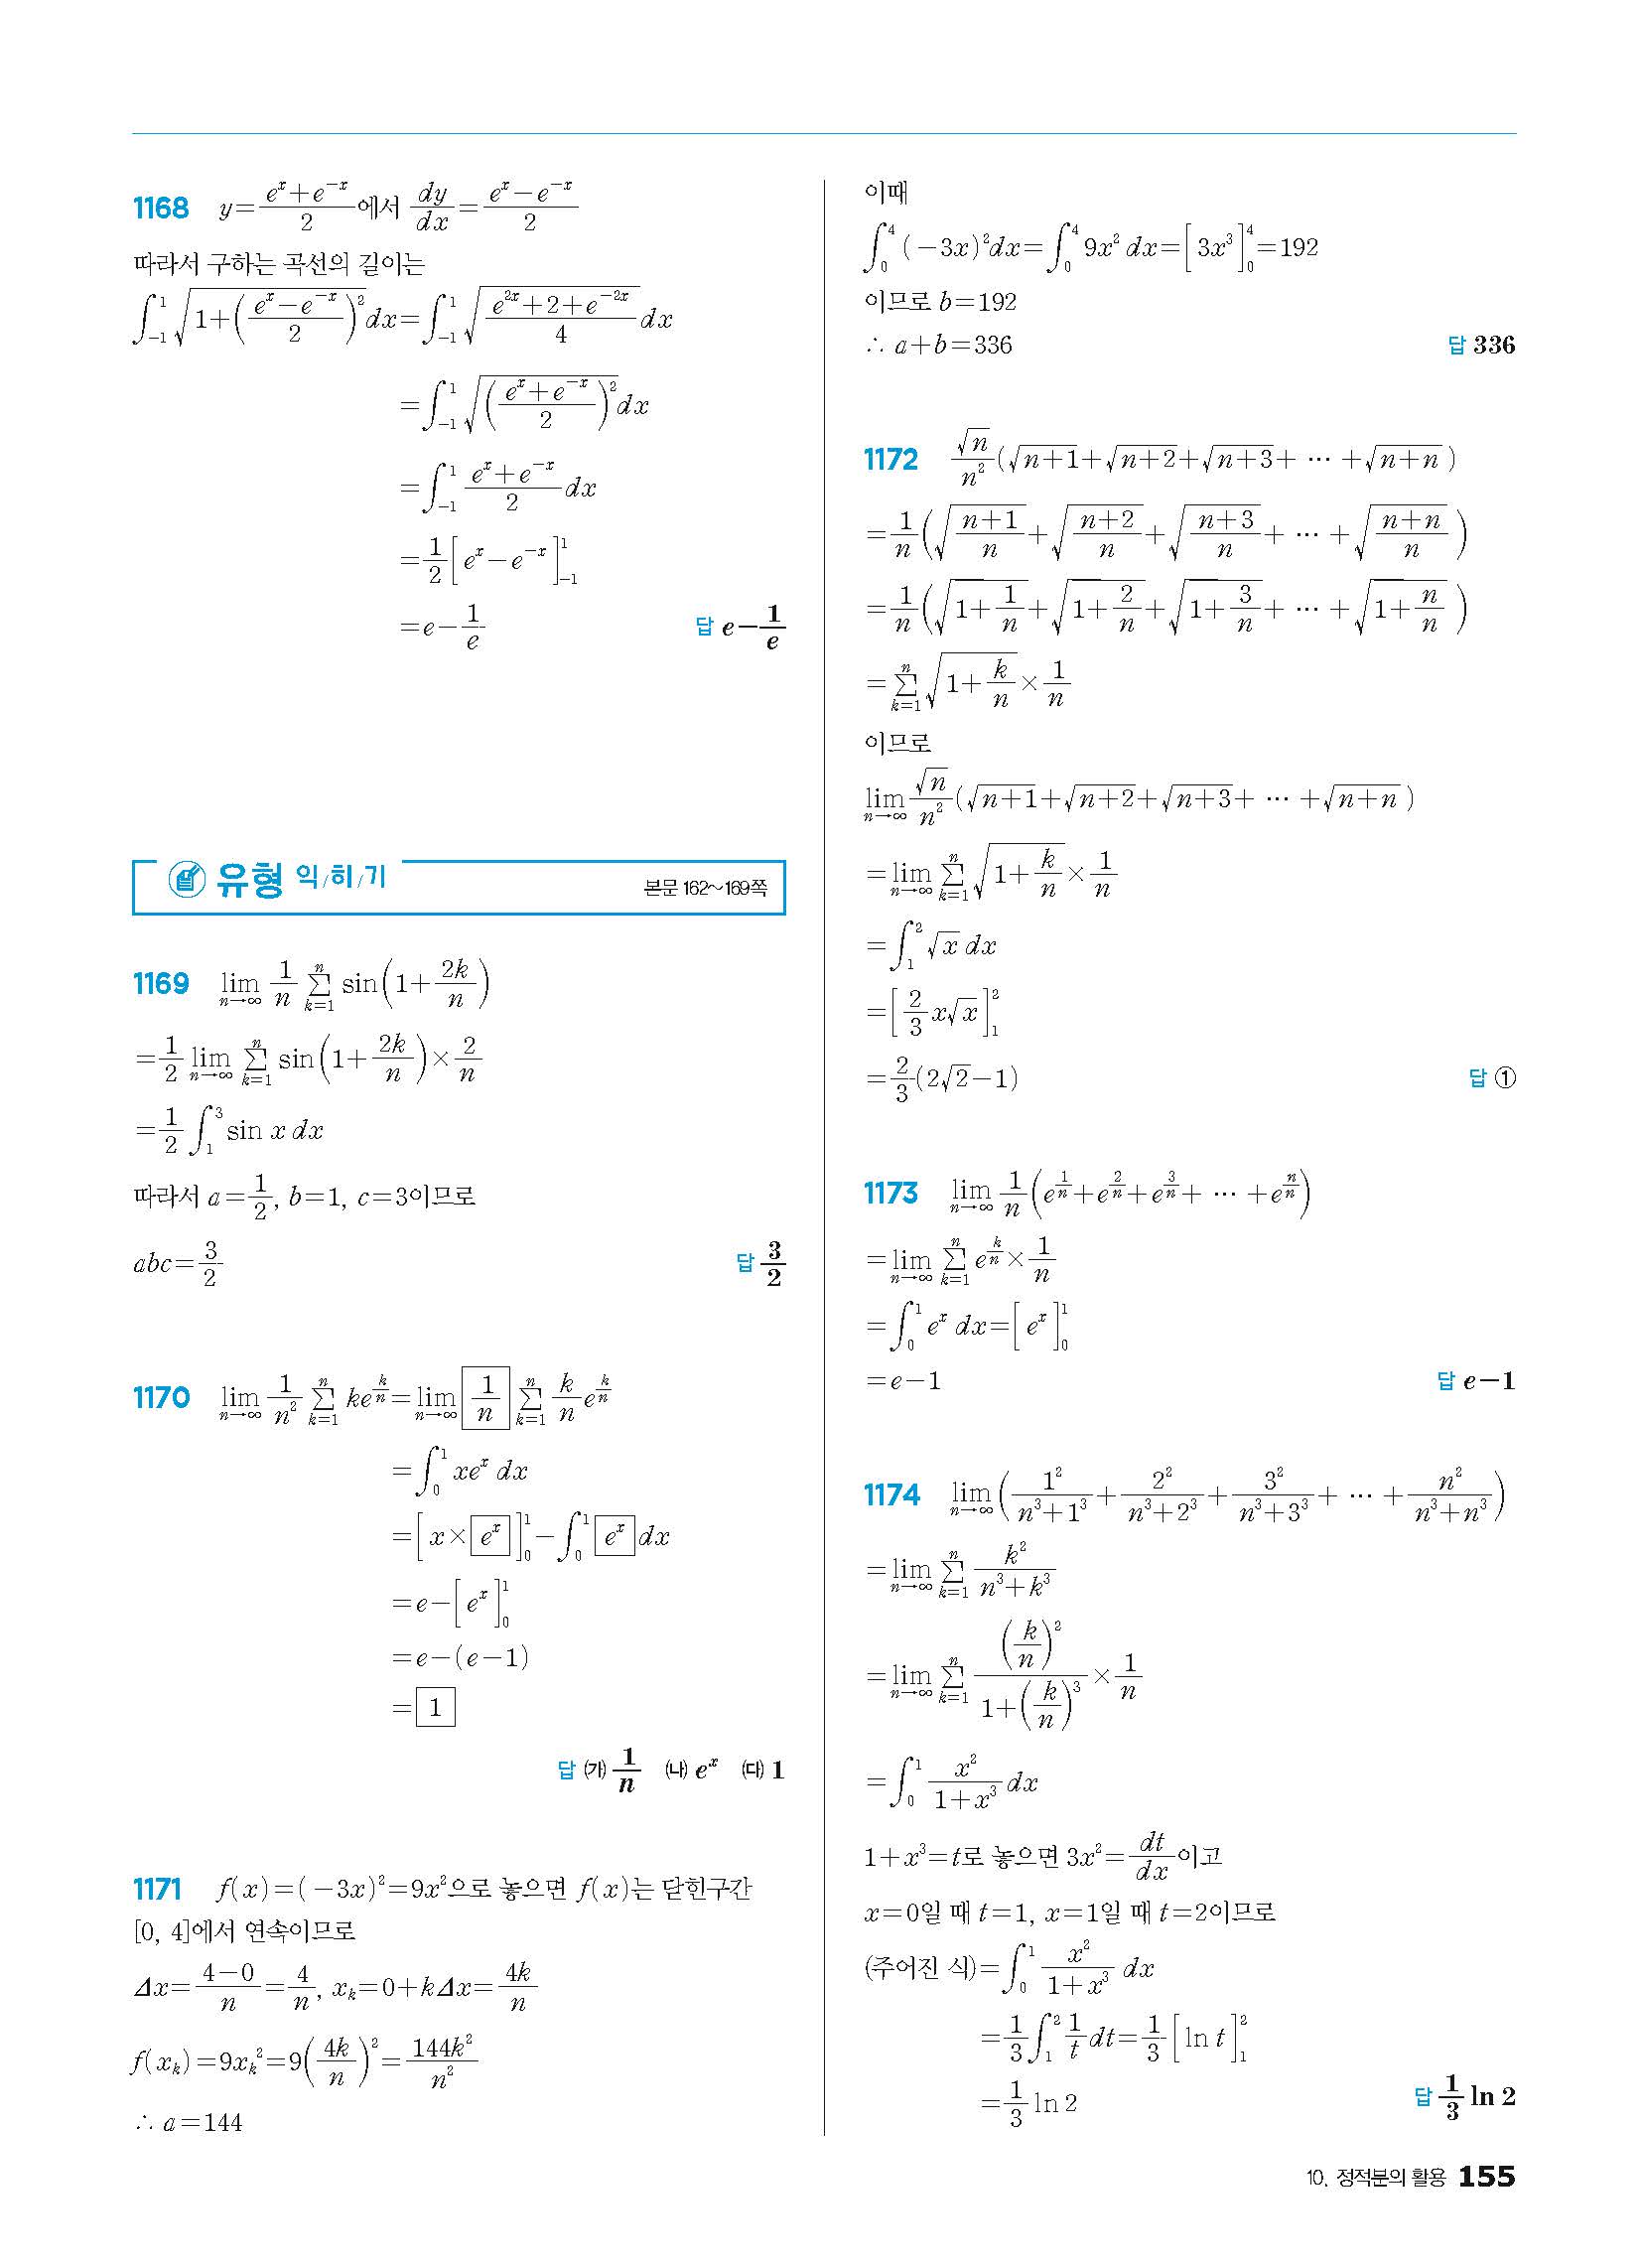 1168 y=\frac{e^x+e^{-x}}{2}에서 \frac{dy}{dx}=\frac{e^x-e^{-x}}{2}
따라서 구하는 곡선의 길이는
\int_{-1}^{1}\sqrt{1+\left(\frac{e^x-e^{-x}}{2}\right)^2}dx=\int_{-1}^{1}\sqrt{\frac{e^{2x}+2+e^{-2x}}{4}}dx
=\int_{-1}^{1}\sqrt{\left(\frac{e^x+e^{-x}}{2}\right)^2}dx
=\int_{-1}^{1}\frac{e^x+e^{-x}}{2}dx
=\frac{1}{2}\left[e^x-e^{-x}\right]_{-1}^{1}
=e-\frac{1}{e} 답 e-\frac{1}{e}
유형 익/히/기 본문 162~169쪽
1169 \lim_{n→∞}\frac{1}{n}\sum_{k=1}^{n}\sin\left(1+\frac{2k}{n}\right)
=\frac{1}{2}\lim_{n→∞}\sum_{k=1}^{n}\sin\left(1+\frac{2k}{n}\right)×\frac{2}{n}
=\frac{1}{2}\int_{1}^{3}\sin x dx
따라서 a=\frac{1}{2}, b=1, c=3이므로
abc=\frac{3}{2} 답 \frac{3}{2}
1170 \lim_{n→∞}\frac{1}{n^2}\sum_{k=1}^{n}ke^{\frac{k}{n}}=\lim_{n→∞}\boxed{\frac{1}{n}}\sum_{k=1}^{n}\frac{k}{n}e^{\frac{k}{n}}
=\int_{0}^{1}xe^x dx
=\left[x×\boxed{e^x}\right]_{0}^{1}-\int_{0}^{1}\boxed{e^x}dx
=e-\left[e^x\right]_{0}^{1}
=e-(e-1)
=\boxed{1}
답 ㈎ \frac{1}{n} ㈏ e^x ㈐ 1
1171 f(x)=(-3x)^2=9x^2으로 놓으면 f(x)는 닫힌구간
[0, 4]에서 연속이므로
Δx=\frac{4-0}{n}=\frac{4}{n}, x_k=0+kΔx=\frac{4k}{n}
f(x_k)=9x_k^2=9\left(\frac{4k}{n}\right)^2=\frac{144k^2}{n^2}
∴ a=144
이때
\int_{0}^{4}(-3x)^2dx=\int_{0}^{4}9x^2 dx=\left[3x^3\right]_{0}^{4}=192
이므로 b=192
∴ a+b=336 답 336
1172 \frac{\sqrt{n}}{n^2}(\sqrt{n+1}+\sqrt{n+2}+\sqrt{n+3}+ … +\sqrt{n+n})
=\frac{1}{n}\left(\sqrt{\frac{n+1}{n}}+\sqrt{\frac{n+2}{n}}+\sqrt{\frac{n+3}{n}}+ … +\sqrt{\frac{n+n}{n}}\right)
=\frac{1}{n}\left(\sqrt{1+\frac{1}{n}}+\sqrt{1+\frac{2}{n}}+\sqrt{1+\frac{3}{n}}+ … +\sqrt{1+\frac{n}{n}}\right)
=\sum_{k=1}^{n}\sqrt{1+\frac{k}{n}}×\frac{1}{n}
이므로
\lim_{n→∞}\frac{\sqrt{n}}{n^2}(\sqrt{n+1}+\sqrt{n+2}+\sqrt{n+3}+ … +\sqrt{n+n})
=\lim_{n→∞}\sum_{k=1}^{n}\sqrt{1+\frac{k}{n}}×\frac{1}{n}
=\int_{1}^{2}\sqrt{x} dx
=\left[\frac{2}{3}x\sqrt{x}\right]_{1}^{2}
=\frac{2}{3}(2\sqrt{2}-1) 답 ①
1173 \lim_{n→∞}\frac{1}{n}\left(e^{\frac{1}{n}}+e^{\frac{2}{n}}+e^{\frac{3}{n}}+ … +e^{\frac{n}{n}}\right)
=\lim_{n→∞}\sum_{k=1}^{n}e^{\frac{k}{n}}×\frac{1}{n}
=\int_{0}^{1}e^x dx=\left[e^x\right]_{0}^{1}
=e-1 답 e-1
1174 \lim_{n→∞}\left(\frac{1^2}{n^3+1^3}+\frac{2^2}{n^3+2^3}+\frac{3^2}{n^3+3^3}+ … +\frac{n^2}{n^3+n^3}\right)
=\lim_{n→∞}\sum_{k=1}^{n}\frac{k^2}{n^3+k^3}
=\lim_{n→∞}\sum_{k=1}^{n}\frac{\left(\frac{k}{n}\right)^2}{1+\left(\frac{k}{n}\right)^3}×\frac{1}{n}
=\int_{0}^{1}\frac{x^2}{1+x^3}dx
1+x^3=t로 놓으면 3x^2=\frac{dt}{dx}이고
x=0일 때 t=1, x=1일 때 t=2이므로
(주어진 식)=\int_{0}^{1}\frac{x^2}{1+x^3} dx
=\frac{1}{3}\int_{1}^{2}\frac{1}{t}dt=\frac{1}{3}\left[\ln t\right]_{1}^{2}
=\frac{1}{3}\ln 2 답 \frac{1}{3}\ln 2
10. 정적분의 활용 155